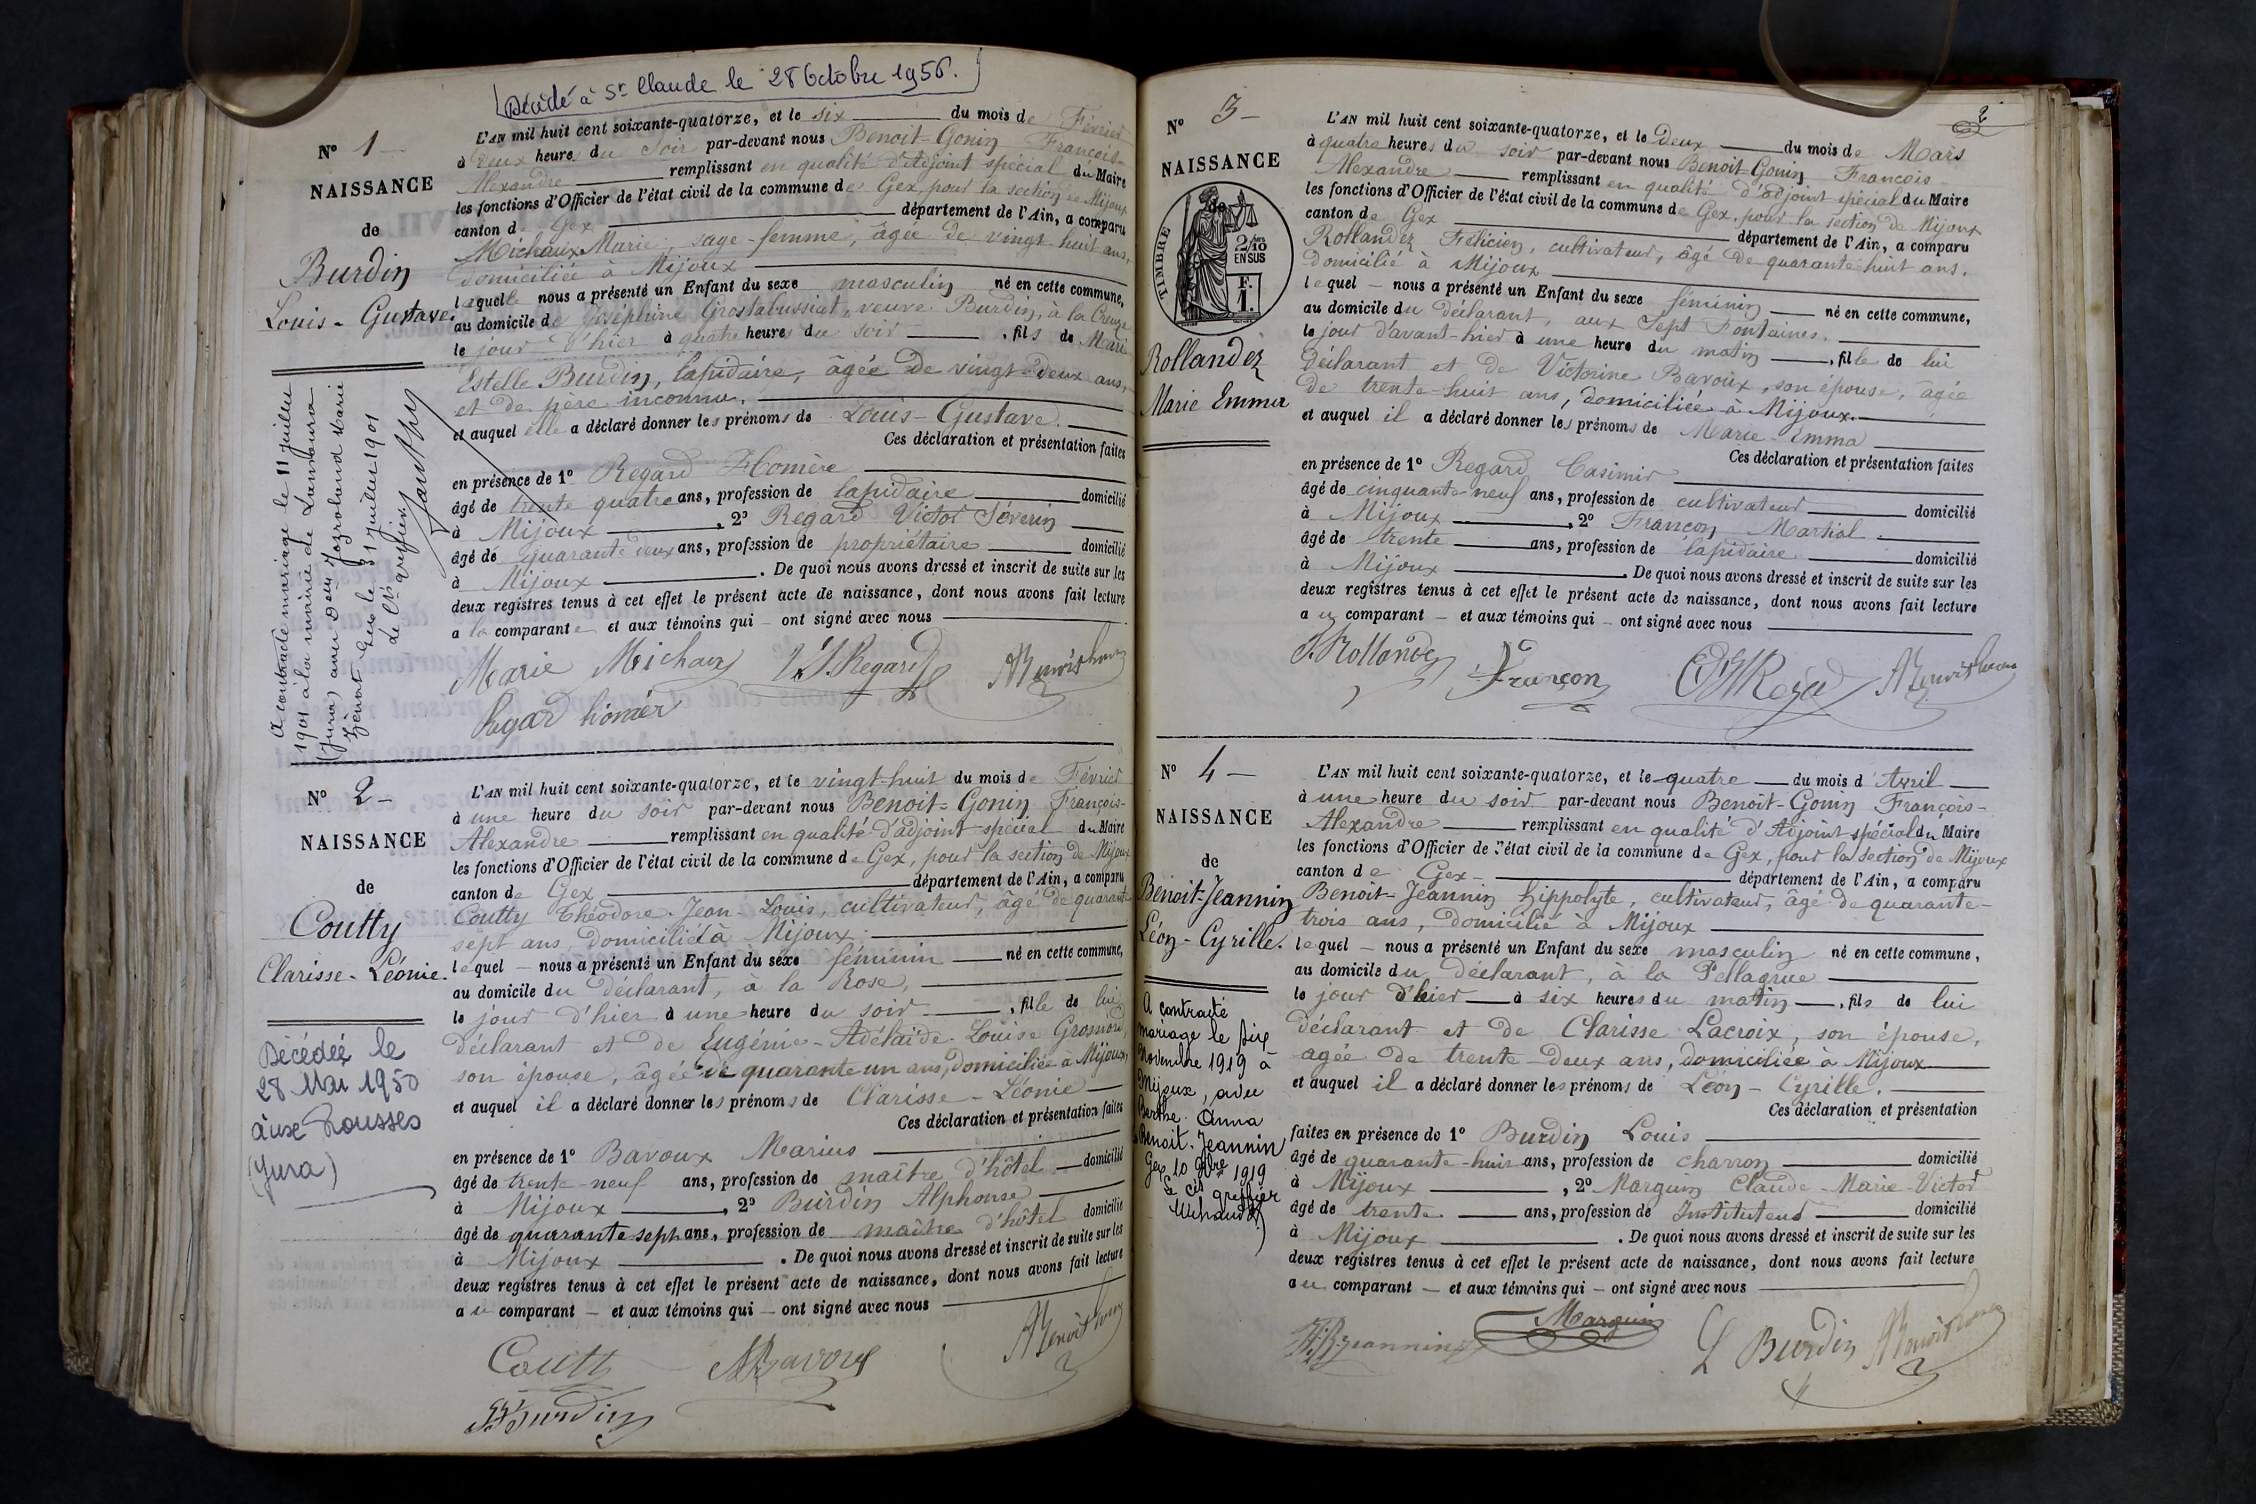 Décédé à St Claude le 28 Octobre 1956.
N° 1
NAISSANCE
de
Burdin
Louis-Gustave.
A contracté mariage le 11 juillet
1901 à la mairie de Lamoura
(Jura) avec Delle
Marie
Gex le 31 juillet 1901
Le Cis greffier
L'AN mil huit cent soixante-quatorze, et le six du mois de Février
à deux heures du soir par-devant nous Benoit-Gonin François-
Alexandre remplissant en qualité d'Adjoint spécial du Maire
les fonctions d'Officier de l'état civil de la commune de Gex, pour la section de Mijoux
canton de Gex département de l'Ain, a comparu
Michaux Marie, sage-femme, âgée de vingt huit ans,
domiciliée à Mijoux
laquelle nous a présenté un Enfant du sexe masculin né en cette commune,
au domicile de Joséphine Grostabussiat, veuve Burdin, à la
le jour d'hier à quatre heures du soir , fils de Marie
Estelle Burdin, lapidaire, âgée de vingt-deux ans,
et de père inconnu.
et auquel elle a déclaré donner les prénoms de Louis-Gustave.
Ces déclaration et présentation faites
en présence de 1° Regard Homère
âgé de trente quatre ans, profession de lapidaire domicilié
à Mijoux , 2° Regard Victor Séverin
âgé de quarante deux ans, profession de propriétaire domicilié
à Mijoux . De quoi nous avons dressé et inscrit de suite sur les
deux registres tenus à cet effet le présent acte de naissance, dont nous avons fait lecture
a la comparante et aux témoins qui ont signé avec nous
Marie Michaux V. S. Regard
Regard homér
N° 2
NAISSANCE
de
Coutty
Clarisse-Léonie.
Décédée le
28 Mai 1950
aux Rousses
(Jura)
L'AN mil huit cent soixante-quatorze, et le vingt-huit du mois de Février
à une heure du soir par-devant nous Benoit-Gonin François-
Alexandre remplissant en qualité d'adjoint spécial du Maire
les fonctions d'Officier de l'état civil de la commune de Gex, pour la section de Mijoux
canton de Gex département de l'Ain, a comparu
Coutty Théodore-Jean-Louis, cultivateur, âgé de quarante
sept ans, domicilié à Mijoux
lequel nous a présenté un Enfant du sexe féminin né en cette commune,
au domicile du déclarant, à la Rose,
le jour d'hier à une heure du soir , fille de lui
déclarant et de Eugénie-Adélaïde-Louise Grosnord,
son épouse, âgée de quarante un ans, domiciliée à Mijoux,
et auquel il a déclaré donner les prénoms de Clarisse-Léonie
Ces déclaration et présentation faites
en présence de 1° Bavoux Marius
âgé de trente-neuf ans, profession de maître d'hôtel domicilié
à Mijoux , 2° Burdin Alphonse
âgé de quarante sept ans, profession de maître d'hôtel domicilié
à Mijoux . De quoi nous avons dressé et inscrit de suite sur les
deux registres tenus à cet effet le présent acte de naissance, dont nous avons fait lecture
au comparant et aux témoins qui ont signé avec nous
Coutty Bavoux
Burdin
2
N° 3
NAISSANCE
de
TIMBRE
2/10
EN SUS
F.
1.
Rollandez
Marie Emma
L'AN mil huit cent soixante-quatorze, et le deux du mois de Mars
à quatre heures du soir par-devant nous Benoit-Gonin François-
Alexandre remplissant en qualité d'adjoint spécial du Maire
les fonctions d'Officier de l'état civil de la commune de Gex, pour la section de Mijoux
canton de Gex département de l'Ain, a comparu
Rollandez Félicien, cultivateur, âgé de quarante huit ans.
domicilié à Mijoux
lequel nous a présenté un Enfant du sexe féminin né en cette commune,
au domicile du déclarant, aux Sept Fontaines.
le jour d'avant-hier à une heure du matin , fille de lui
déclarant et de Victorine Bavoux, son épouse, âgée
de trente-huit ans, domiciliée à Mijoux.
et auquel il a déclaré donner les prénoms de Marie-Emma
Ces déclaration et présentation faites
en présence de 1° Regard Casimir
âgé de cinquante-neuf ans, profession de cultivateur domicilié
à Mijoux , 2° Françon Martial
âgé de trente ans, profession de lapidaire domicilié
à Mijoux . De quoi nous avons dressé et inscrit de suite sur les
deux registres tenus à cet effet le présent acte de naissance, dont nous avons fait lecture
au comparant et aux témoins qui ont signé avec nous
F. Rollandez Françon
N° 4
NAISSANCE
de
Benoit-Jeannin
Léon-Cyrille.
A contracté
mariage le six
Novembre 1919 à
Mijoux, avec
Berthe Anna
Benoit-Jeannin
Gex 10 9bre 1919
Le Cis greffier
L'AN mil huit cent soixante-quatorze, et le quatre du mois d'Avril
à une heure du soir par-devant nous Benoit-Gonin François-
Alexandre remplissant en qualité d'Adjoint spécial du Maire
les fonctions d'Officier de l'état civil de la commune de Gex, pour la section de Mijoux
canton de Gex département de l'Ain, a comparu
Benoit-Jeannin hippolyte, cultivateur, âgé de quarante-
trois ans, domicilié à Mijoux
lequel nous a présenté un Enfant du sexe masculin né en cette commune,
au domicile du déclarant, à la Pellagrue
le jour d'hier à six heures du matin , fils de lui
déclarant et de Clarisse Lacroix, son épouse,
agée de trente-deux ans, domiciliée à Mijoux
et auquel il a déclaré donner les prénoms de Léon-Cyrille.
Ces déclaration et présentation
faites en présence de 1° Burdin Louis
âgé de quarante-huit ans, profession de charron domicilié
à Mijoux , 2° Marguin Claude-Marie-Victor
âgé de trente ans, profession de Instituteur domicilié
à Mijoux . De quoi nous avons dressé et inscrit de suite sur les
deux registres tenus à cet effet le présent acte de naissance, dont nous avons fait lecture
au comparant et aux témoins qui ont signé avec nous
H. B. Jeannin Marguin L Burdin